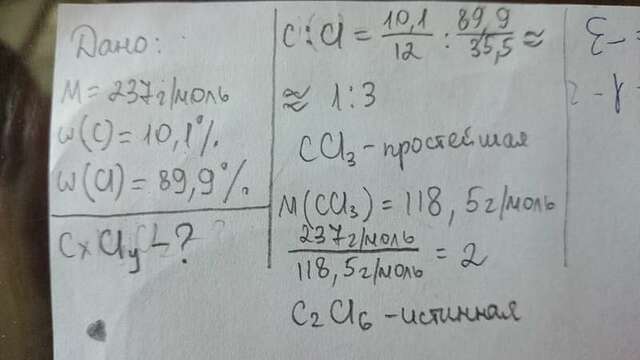 Дано:
M = 237 г/моль
w(C) = 10,1%
w(Cl) = 89,9%
CxCly - ?
C:Cl = 10,1/12 : 89,9/35,5 ≈
≈ 1:3
CCl₃ - простейшая
M(CCl₃) = 118,5 г/моль
237 г/моль / 118,5 г/моль = 2
C₂Cl₆ - истинная